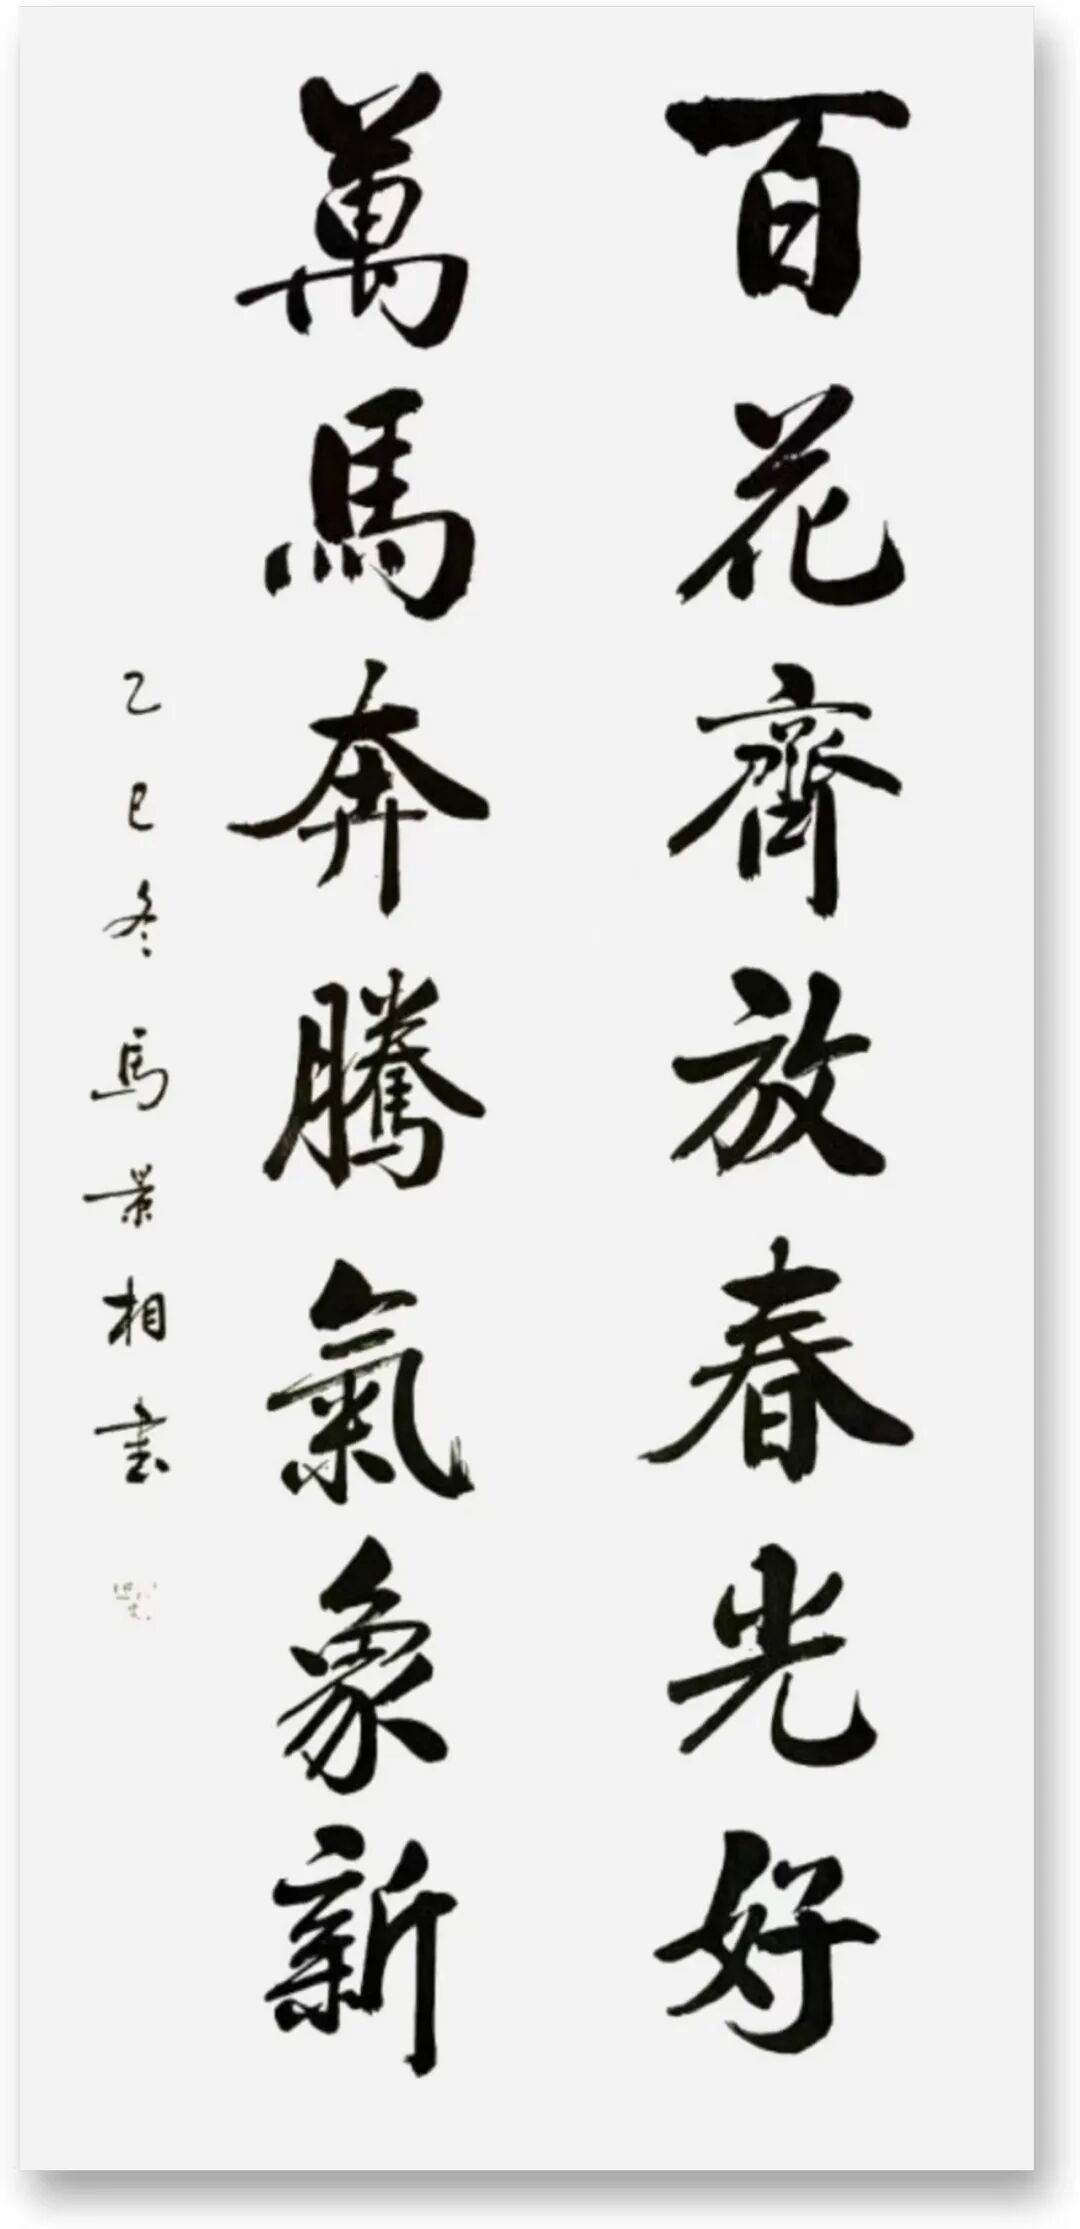 百花齊放春光好
萬馬奔騰氣象新
乙巳冬馬景相書